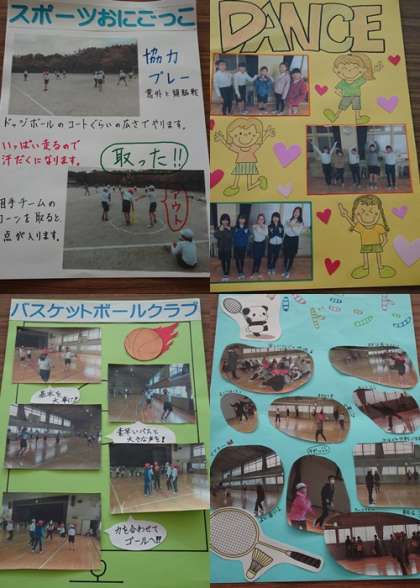 スポーツおにごっこ
協力
プレー
意外と頭脳戦
ドッジボールのコートぐらいの広さでやります。
いっぱい走るので
汗だくになります。
取った!!
アウト
相手チームの
コーンを取ると
点が入ります。
DANCE
バスケットボールクラブ
基本を
大事に!
素早いパスと
大きな声を!
力を合わせて
ゴールへ!!